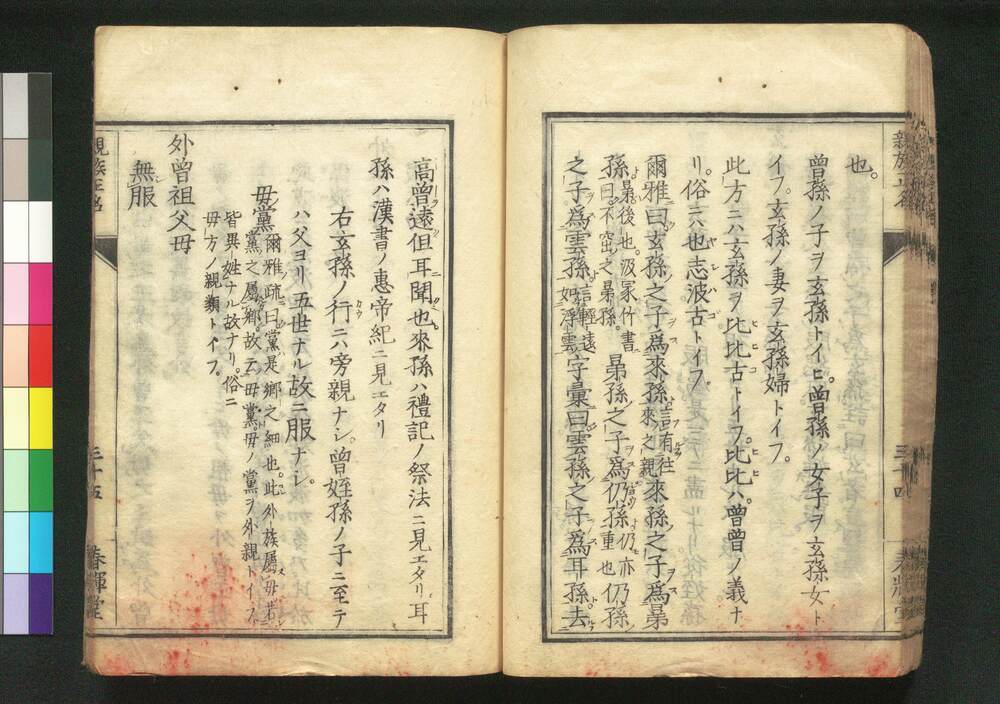 也。
曽孫ノ子ヲ玄孫トイヒ。曽孫ノ女子ヲ玄孫女ト
イフ。玄孫ノ妻ヲ玄孫婦トイフ。
此方ニハ玄孫ヲ比比古トイフ。比比ハ。曽曽ノ義ナ
リ。俗ニハ也志波古トイフ
爾雅曰玄孫之子爲來孫言有往來之親來孫之子爲昴
孫昴後也。汲冢竹書曰。不窋之昴孫。昴孫之子爲仍孫仍亦重也仍孫
之子爲雲孫言輕遠如浮雲字彙曰雲孫之子爲耳孫去
親族正名
三十四
高曽遠但耳聞也。來孫ハ禮記ノ祭法ニ見エタリ。耳
孫ハ漢書ノ惠帝紀ニ見エタリ
右玄孫ノ行ニハ旁親ナシ。曽姪孫ノ子ニ至テ
ハ父ヨリ五世ナル故ニ服ナシ。
毋黨爾雅疏曰黨是鄉之細也。此外族屬毋若黨之屬鄉。故云毋黨。毋ノ黨ヲ外親トイフ。
皆異姓ナル故ナリ。俗ニ
毋方ノ親類トイフ。
外曽祖父毋
無服
親族正名
三十五
春暉堂